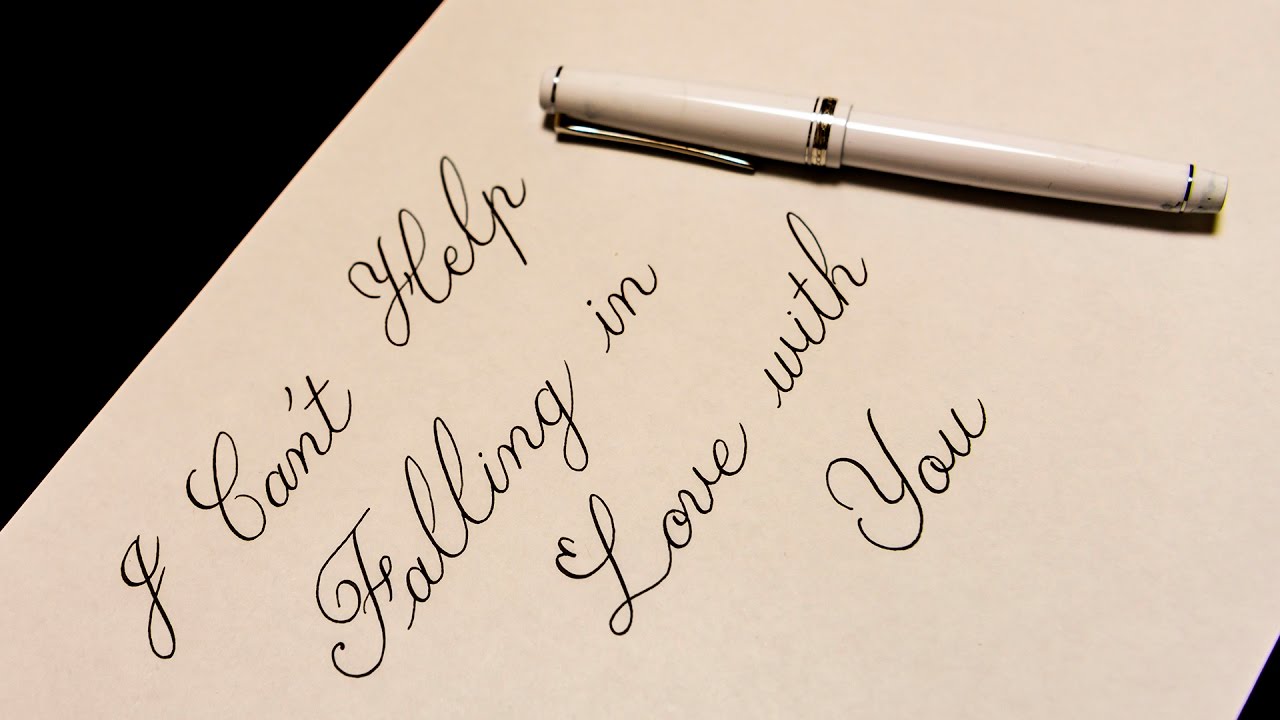 I Can't Help
Falling in
Love with
You